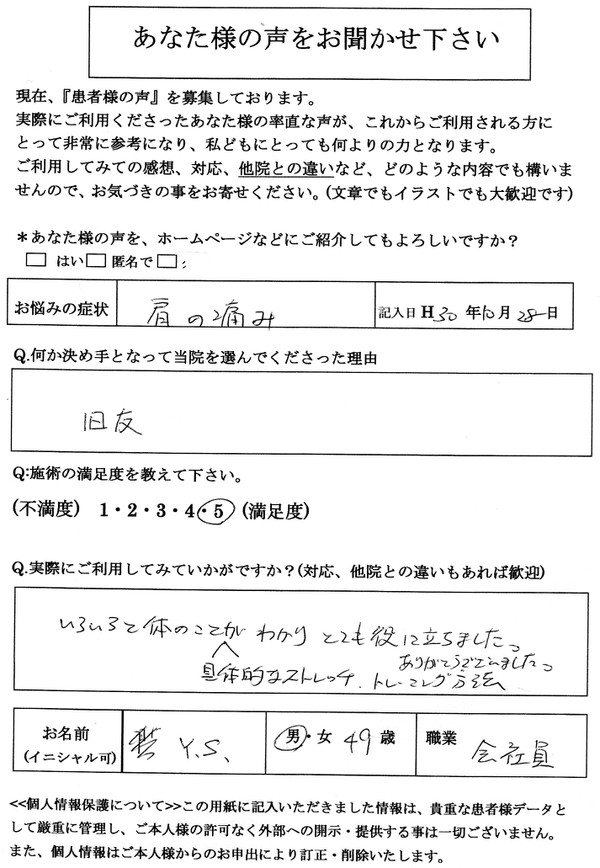 あなた様の声をお聞かせ下さい
現在、『患者様の声』を募集しております。
実際にご利用くださったあなた様の率直な声が、これからご利用される方に
とって非常に参考になり、私どもにとっても何よりの力となります。
ご利用してみての感想、対応、他院との違いなど、どのような内容でも構いま
せんので、お気づきの事をお寄せください。(文章でもイラストでも大歓迎です)
＊あなた様の声を、ホームページなどにご紹介してもよろしいですか？
□ はい □ 匿名で □
お悩みの症状 肩の痛み 記入日 H 30 年 10 月 28 日
Q.何か決め手となって当院を選んでくださった理由
旧友
Q:施術の満足度を教えて下さい。
(不満度) 1・2・3・4・5 (満足度)
Q.実際にご利用してみていかがですか？(対応、他院との違いもあれば歓迎)
いろいろと体のことがわかりとても役に立ちました。
ありがとうございました。
具体的なストレッチ、トレーニング方法
お名前 Y.S. 男・女 49 歳 職業 会社員
(イニシャル可)
<<個人情報保護について>>この用紙に記入いただきました情報は、貴重な患者様データと
して厳重に管理し、ご本人様の許可なく外部への開示・提供する事は一切ございません。
また、個人情報はご本人様からのお申出により訂正・削除いたします。